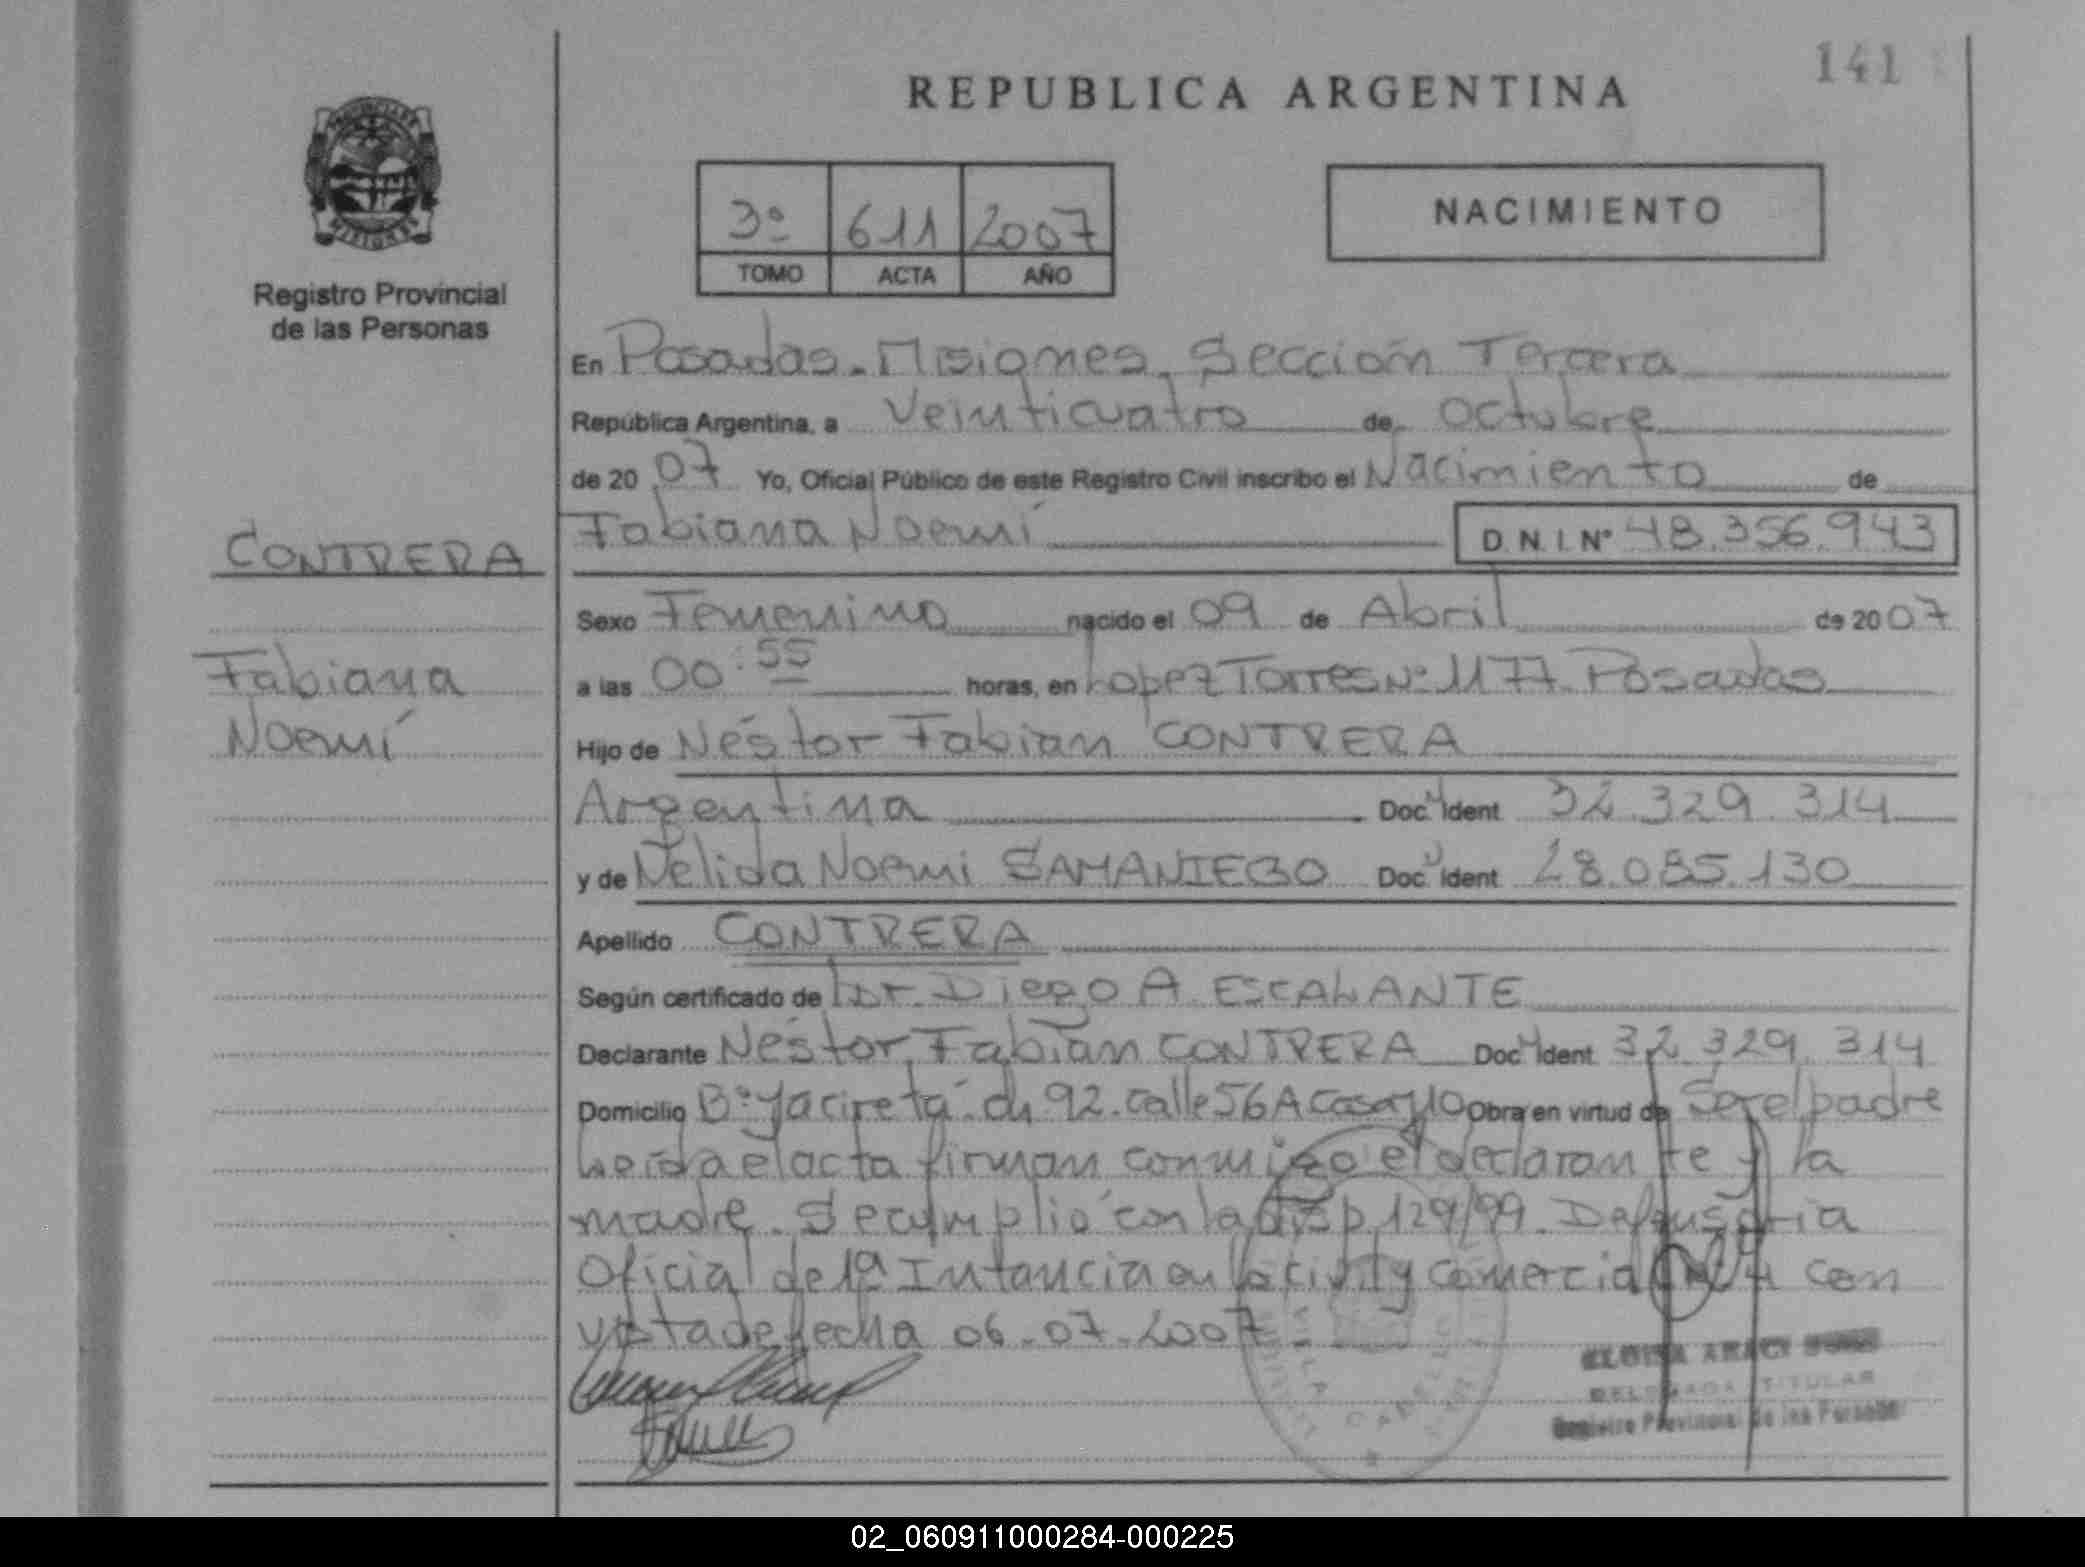 141
REPUBLICA ARGENTINA
3º 611 2007
TOMO ACTA AÑO
NACIMIENTO
PROVINCIA DE
MISIONES
Registro Provincial
de las Personas
En Posadas. Misiones. Sección Tercera
República Argentina, a Veinticuatro de Octubre
de 2007 Yo, Oficial Público de este Registro Civil inscribo el Nacimiento de
Fabiana Noemí D.N.I. Nº 48.356.943
CONTRERA
Fabiana
Noemí
Sexo Femenino nacido el 09 de Abril de 2007
a las 00:55 horas, en Lopez Torres Nº 1177. Posadas
Hijo de Néstor Fabian CONTRERA
Argentina Doc. Ident 32.329.314
y de Nelida Noemi SAMANIEGO Doc. Ident 28.085.130
Apellido CONTRERA
Según certificado de Dr. Diego A ESCALANTE
Declarante Néstor Fabian CONTRERA Doc. Ident. 32.329.314
Domicilio Bº Yacireta ch 92. calle 56A casa 10 Obra en virtud de Ser el padre
Leída el acta firman conmigo el declarante y la
madre. Se cumplió con la Disp 129/99. Defensoria
Oficial de 1ª Intancia en lo civil y comercial Nº 4 con
vista de fecha 06-07-2007-
DELEGADA TITULAR
Registro Provincial de las Personas
02_060911000284-000225